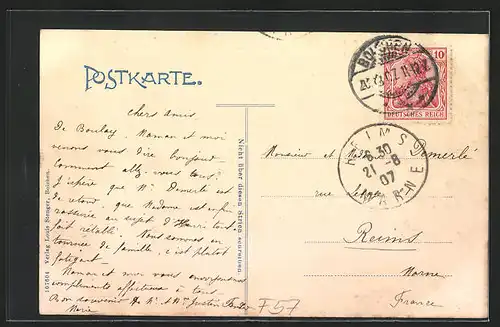 POSTKARTE.
chers amis
De Boulay, Maman et moi
venons vous dire bonjour
Comment allez-vous tous?
J'espère que Mr Demerlé est
de retour, que Madame est
rassurée au sujet d'Henri tout-à-
fait rétabli. Nous sommes en
tournée de famille, c'est plutôt
fatigant.
Maman et moi vous envoyons nos
compliments affectueux à tous
Bon souvenir de Mr & Me Justin
Marie
107604 Verlag Louis Stenger, Bolchen.
Nicht über diesen Strich schreiben.
BOLCHEN
10
DEUTSCHES REICH
REIMS
6.30
21-8
07
MARNE
Monsieur et Mme Demerlé
rue
Reims
Marne
France
F57